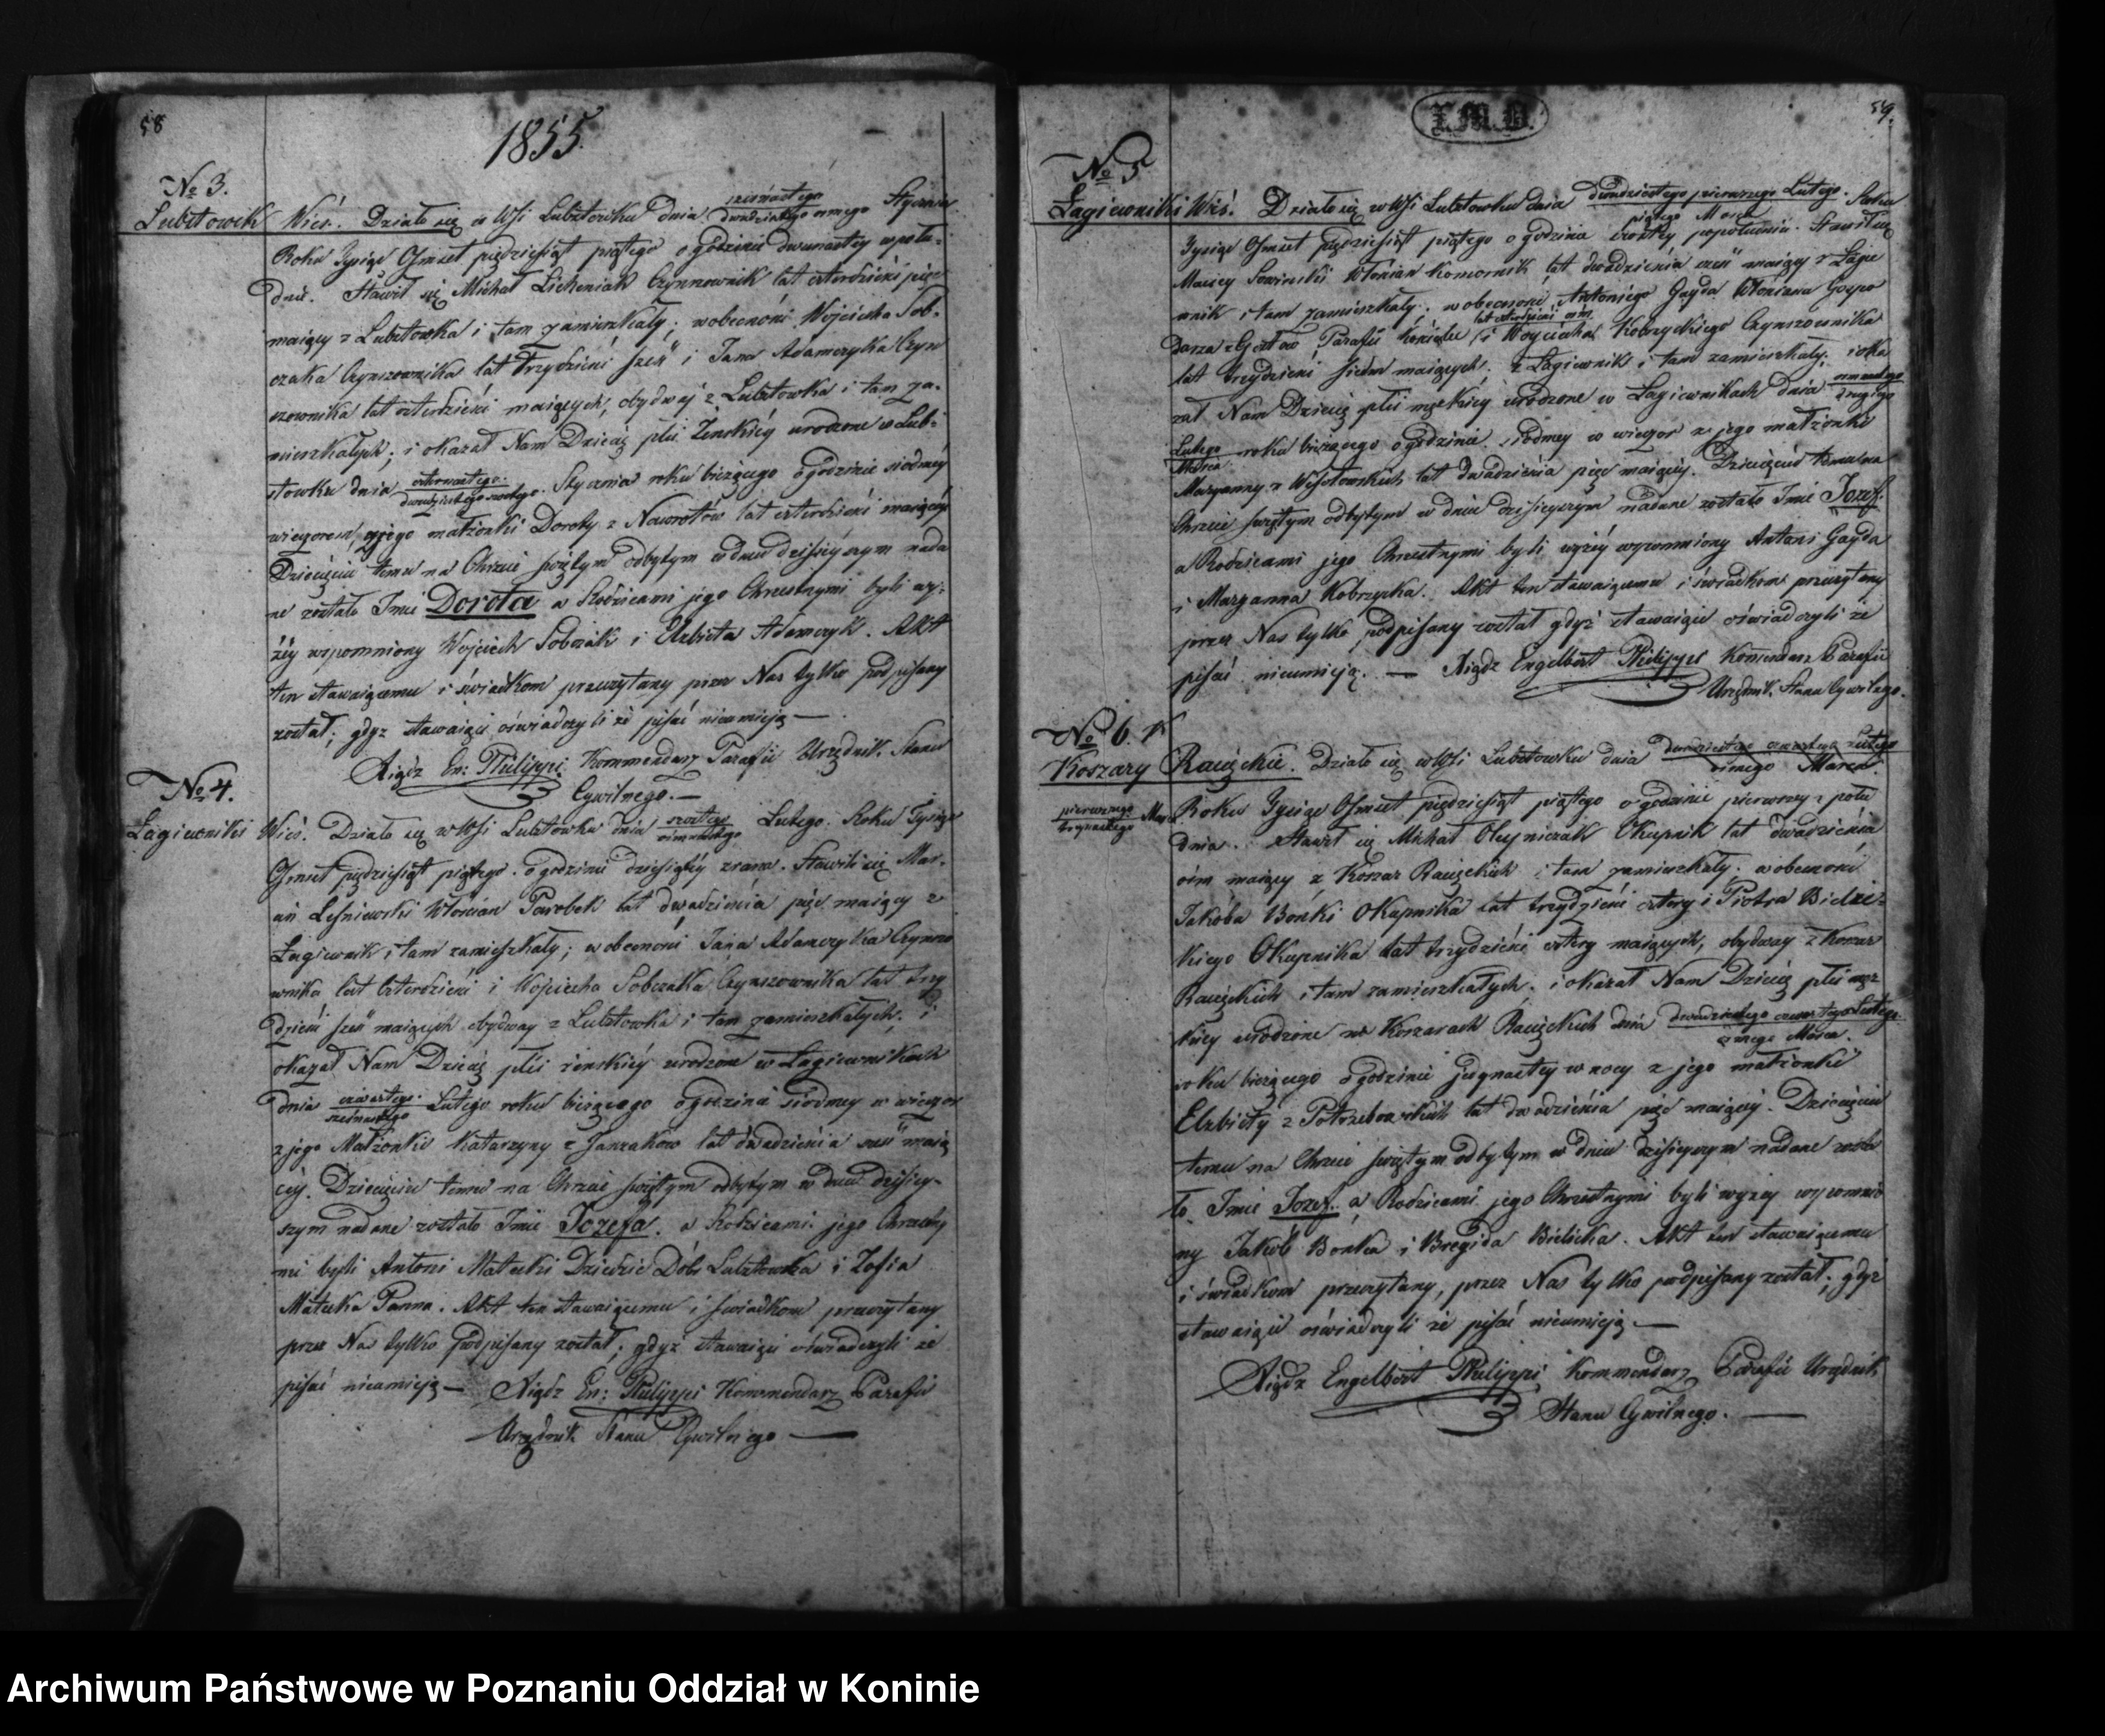 58
1855.
№ 3.
Lubstowek Wieś. Działo się w Wsi Lubstowku dnia szesnastego / dwudziestego osmego Stycznia
Roku Tysiąc Ośmset pięćdziesiąt piątego o godzinie dwunastey w połu-
dnie. Stawił się Michał Licheniak Czynszownik lat czterdzieści pięć
maiący z Lubstowka i tam zamieszkały; w obecności Wojciecha Sob-
czaka Czynszownika lat Trzydzieści sześć i Jana Adamczyka Czyn
szownika lat czterdzieści maiących, obydwaj z Lubstowka i tam za-
mieszkałych; i okazał Nam Dziecię płci Żeńskiéy urodzone w Lub-
stowku dnia czternastego / dwudziestego szóstego Stycznia roku bieżącego o godzinie siódméy
wieczorem, z jego małżonki Doroty z Nawrotów lat czterdzieści maiącéy
Dziecięciu temu na Chrzcie świętym odbytym w dniu dzisiéyszym nada
ne zostało Imie Dorota a Rodzicami jego Chrzestnymi byli wy-
żéy wspomniony Wojciech Sobczak i Elzbieta Adamczyk. Akt
ten stawaiącemu i świadkom przeczytany przez Nas tylko podpisany
został; gdyż stawaiący oświadczyli że pisać nieumieją —
Xiądz En: Philippi Kommendarz Parafii Urzędnik Stanu
Cywilnego. —
№ 4.
Łagiewniki Wieś. Działo się w Wsi Lubstowku dnia szóstego / ośmnastego Lutego. Roku Tysiąc
Ośmset pięćdziesiąt piątego. o godzinie dziesiątéy zrana. Stawił się Mar-
cin Leśniewski Włościan Parobek lat dwadzieścia pięć maiący z
Łagiewnik i tam zamieszkały; w obecności Jana Adamczyka Czynszo
wnika lat Czterdzieści i Wojciecha Sobczaka Czynszownika lat trzy
dzieści sześć maiących obydway z Lubstowka i tam zamieszkałych; i
okazał Nam Dziecię płci żeńskiéy urodzone w Łagiewnikach
dnia czwartego / szesnastego Lutego roku bieżącego o godzinie siódmey w wieczor
z jego Małżonki Katarzyny z Janzaków lat dwadzieścia sześć maią
céy. Dziecięciu temu na Chrzcie świętym odbytym w dniu dzisiey-
szym nadane zostało Imie Jozefa. a Rodzicami jego Chrzestny
mi byli Antoni Małecki Dziedzic Dóbr Lubstowka i Zofia
Małecka Panna. Akt ten stawaiącemu i świadkom przeczytany
przez Nas tylko podpisany został; gdyż stawaiący oświadczyli że
pisać nieumieją — Xiądz En: Philippi Kommendarz Parafii
Urzędnik Stanu Cywilnego —
59.
I.M.D.
№ 5
Łagiewniki Wieś. Działo się w Wsi Lubstowku dnia dwudziestego pierwszego Lutego / piątego Marca Roku
Tysiąc Ośmset pięćdziesiąt piątego o godzinie czwartey popołudniu. Stawił się
Maciey Sowinski Włościan Komornik lat dwadzieścia sześć maiący z Łagie
wnik i tam zamieszkały; w obecności Antoniego Gayda Włościana Gospo
darza Parafii lat czterdzieści ośm i Woyciecha Kobrzyckiego Czynszownika
lat trzydzieści siedm maiących; z Łagiewnik i tam zamieszkały; i oka
zał Nam Dziecię płci męzkiey urodzone w Łagiewnikach dnia / drugiego
Lutego / Marca roku bieżącego o godzinie siódmey w wieczor z jego małżonki
Maryanny z Wisłowskich lat dwadzieścia pięć maiącéy. Dziecięciu temu na
Chrzcie świętym odbytym w dniu dzisieyszym nadane zostało Imie Jozef.
a Rodzicami jego Chrzestnymi byli wyżéy wspomniony Antoni Gayda
i Maryanna Kobrzycka. Akt ten stawaiącemu i świadkom przeczytany
przez Nas tylko podpisany został gdyż stawaiący oświadczyli że
pisać nieumieją. — Xiądz Engelbert Philippi Komendarz Parafii
Urzędnik Stanu Cywilnego.
№ 6.
Koszary Racięckie. Działo się w Wsi Lubstowku dnia dwudziestego czwartego Lutego / osmego Marca
pierwszego / trzynastego Mar.
Roku Tysiąc Ośmset pięćdziesiąt piątego o godzinie pierwszey z połu
dnia. Stawił się Michał Oleyniczak Okupnik lat dwadzieścia
ośm maiący z Koszar Racięckich i tam zamieszkały; w obecności
Jakóba Bonki Okupnika lat trzydzieści cztery i Piotra Bielic-
kiego Okupnika lat trzydzieści cztery maiących, obydway z Koszar
Racięckich i tam zamieszkałych; i okazał Nam Dziecię płci męz
kiey urodzone w Koszarach Racięckich dnia dwudziestego czwartego Lutego / osmego Marca.
roku bieżącego o godzinie jedynastey w nocy z jego małżonki
Elzbiety z Potrzebowskich lat dwadzieścia pięć maiącéy. Dziecięciu
temu na Chrzcie świętym odbytym w dniu dzisieyszym nadane zosta
ło Imie Jozef. a Rodzicami jego Chrzestnymi byli wyżey wspomnio
ny Jakób Bonka i Bregida Bielicka. Akt ten stawaiącemu
i świadkom przeczytany, przez Nas tylko podpisany został; gdyż
stawaiący oświadczyli że pisać nieumieją —
Xiądz Engelbert Philippi Kommendarz Parafii Urzędnik
Stanu Cywilnego. —
Archiwum Państwowe w Poznaniu Oddział w Koninie